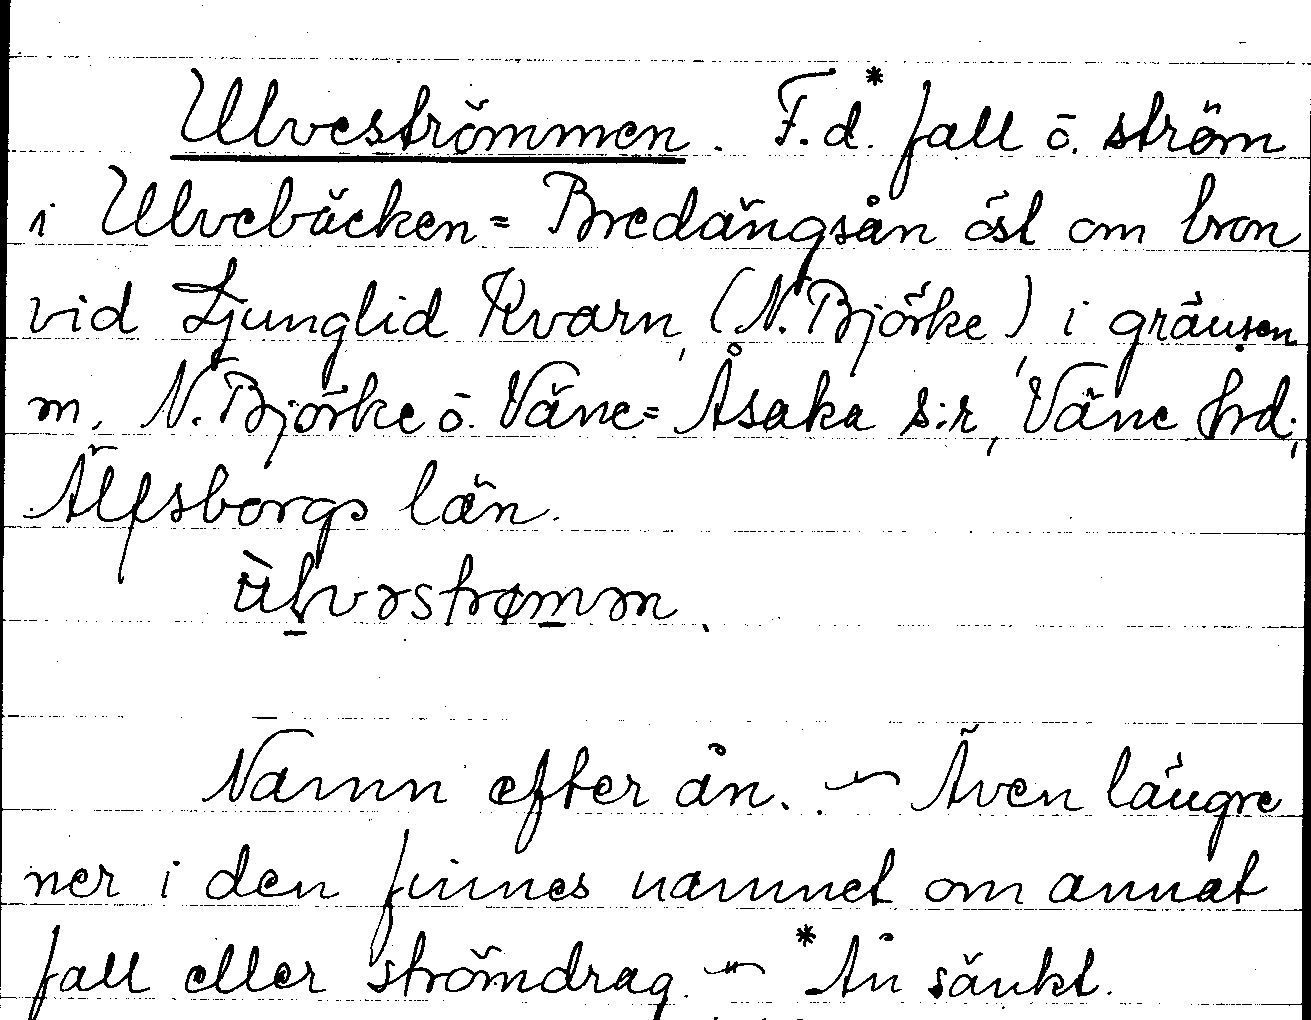 Ulveströmmen. F.d.* fall o. ström
i Ulvebäcken = Bredängsån öst om bron
vid Ljunglid Kvarn, (N. Björke), i gränsen
m. N. Björke o. Väne-Åsaka s:r, Väne hrd;
Älfsborgs län.
ùlvəstrømən.
Namn efter ån. – Även längre
ner i den finnes namnet om annat
fall eller strömdrag. – * Ån sänkt.